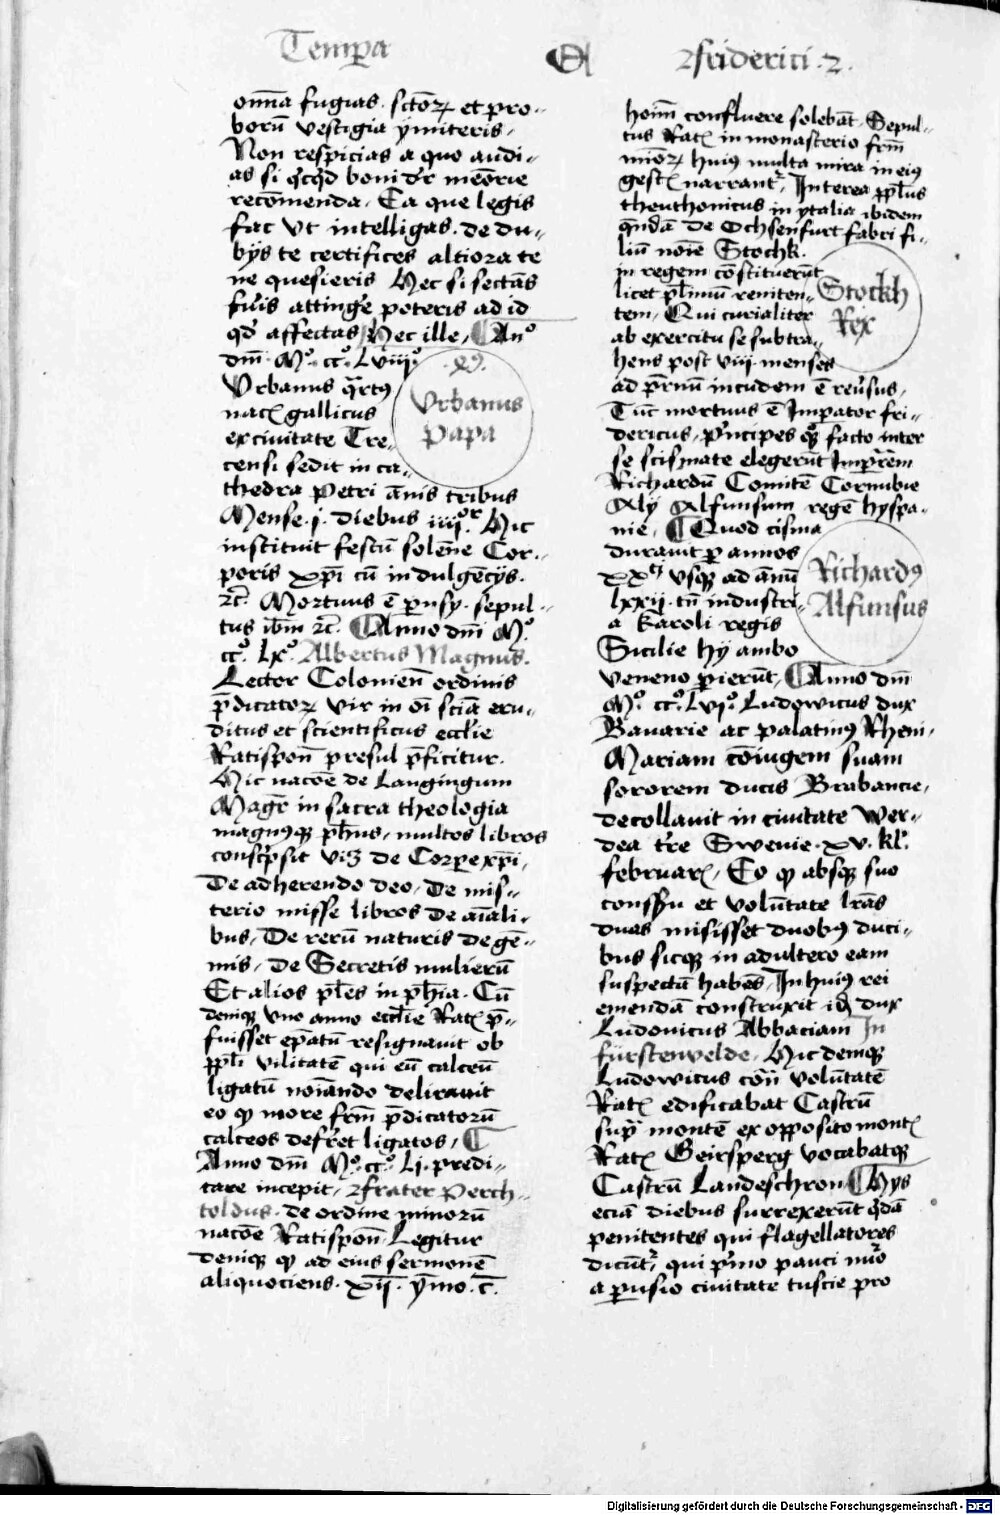 Tempa
Friderici · 2 ·
om̄a fugias · sctōꝝ et pro-
borū vestigia ymiteris ·
Non respicias a quo audi-
as si qͥcqͥd boni dr̄ meōrie
recōmenda · Ea que legis
fac vt intelligas · de du-
bijs te certifices altiora te
ne quesieris Hec si sectās
attingͤe poteris ad id
qd̄ affectas Hec ille · An̊
dm̄ · M̊ · cc̊ · Lviiij̊
Vrbanus qͣrtꝰ
nacꝭ gallicus
ex ciuitate Tre-
censi sedit in ca-
thedra Petri ānis tribus
Mense · j · diebus iiijor Hic
instituit festū solēne Cor-
poris xp̄i cū indulgēcijs ·
⁊c̄ · Mortuus ē pͬusy · sepul-
tus ib̄m ⁊c̄ · Anno dm̄ M̊
cc̊ · Lx̊ · Albertus Magnus ·
Lector Colonien̄ ordinis
p̄dicatoꝝ vir in oī sciā eru-
ditus et scientificus ecclīe
Ratispon̄ presul p̄ficitur ·
Hic nacōe de Laugingum
Magr̄ in sacra theologia
magnꝰqꝫ ph̄us · multos libros
conscp̄sit viꝫ de Corpe xp̄i ·
De adherendo deo · De mis-
terio misse libros de aīali-
bus · De rerū naturis de gē-
mis · de Secretis mulierū
Et alios pl̄es in ph̄ia · Cū
deniqꝫ vno anno ecclīe Ratꝭ p̄-
fuisset ep̄atū resignauit ob
ppl̄i vilitatē qui eū calceū
ligatū noīando delirauit
eo ꝙ more frm̄ p̄dicatorū
calceos defret ligatos ·
Anno dm̄ M̊ · cc̊ · Lj · predi-
care incepit · Frater Perch-
toldus · de ordine minorū
nacōe Ratispon̄ · Legitur
deniqꝫ ꝙ ad eius sermonē
aliquociens · xij · ymo · c̄ ·
Vrbanus
Papa
hoim̄ confluere solebāt · Sepul-
tus Ratꝭ in monasterio frm̄
miōꝝ huiꝰ multa mira in eiꝰ
gestꝭ narrantͬ · Interea pplūs
theuthonicus in ytalia ibidem
qn̄dā de Ochsenfurt fabri fi-
liū noīe Stochk ·
in regem cōstituerūt
licet plīmū reniten-
tem · Qui curialiter
ab exercitu se subtra-
hens post viij menses
ad pͬmū incudem ē reu̓sus ·
Tūc mortuus ē Imperator fri-
dericus · pͥncipes qꝫ facto inter
se scismate elegerūt Impr̄em
Richardū Comitē Cornubie
Alij Alfunsum regē hyspa-
nie · Quod cisma
durauit p annos
xxtj vsqꝫ ad ānū
lxxij · tn̄ industri-
a Karoli regis
Sicilie hij ambo
veneno pierūt · Anno dm̄
M̊ · cc̊ · Lvj̊ · Ludowicus dux
Bauarie ac palatinꝰ Rheni ·
Mariam cōiugem suam
sororem ducis Brabancie ·
decollauit in ciuitate Wer-
dea tr̄e Sweuie · xv · kl̄ ·
februarꝭ · Eo ꝙ absqꝫ suo
conssu et volūtate lr̄as
duas misisset duobꝰ duci-
bus sicqꝫ in adultero eam
suspectū habēs · In huiꝰ rei
emendā construxit id dux
Ludouicus Abbaciam In
fürstenuelde · Hic deniqꝫ
Ludowicus cōn̄ volūtatē
Ratꝭ edificabat Castrū
supͬ montē ex opposito montꝭ
Ratꝭ Geirsperg vocabatqꝫ
Castrū Landeschron · Hys
eciā diebus surrexerūt qͥdā
penitentes qui flagellatores
dicūtͬ · qui pͥmo pauci nūo
a pͬusio ciuitate tuscie pro
Stockh
Rex
Richardꝰ
Alfunsus
Digitalisierung gefördert durch die Deutsche Forschungsgemeinschaft - DFG